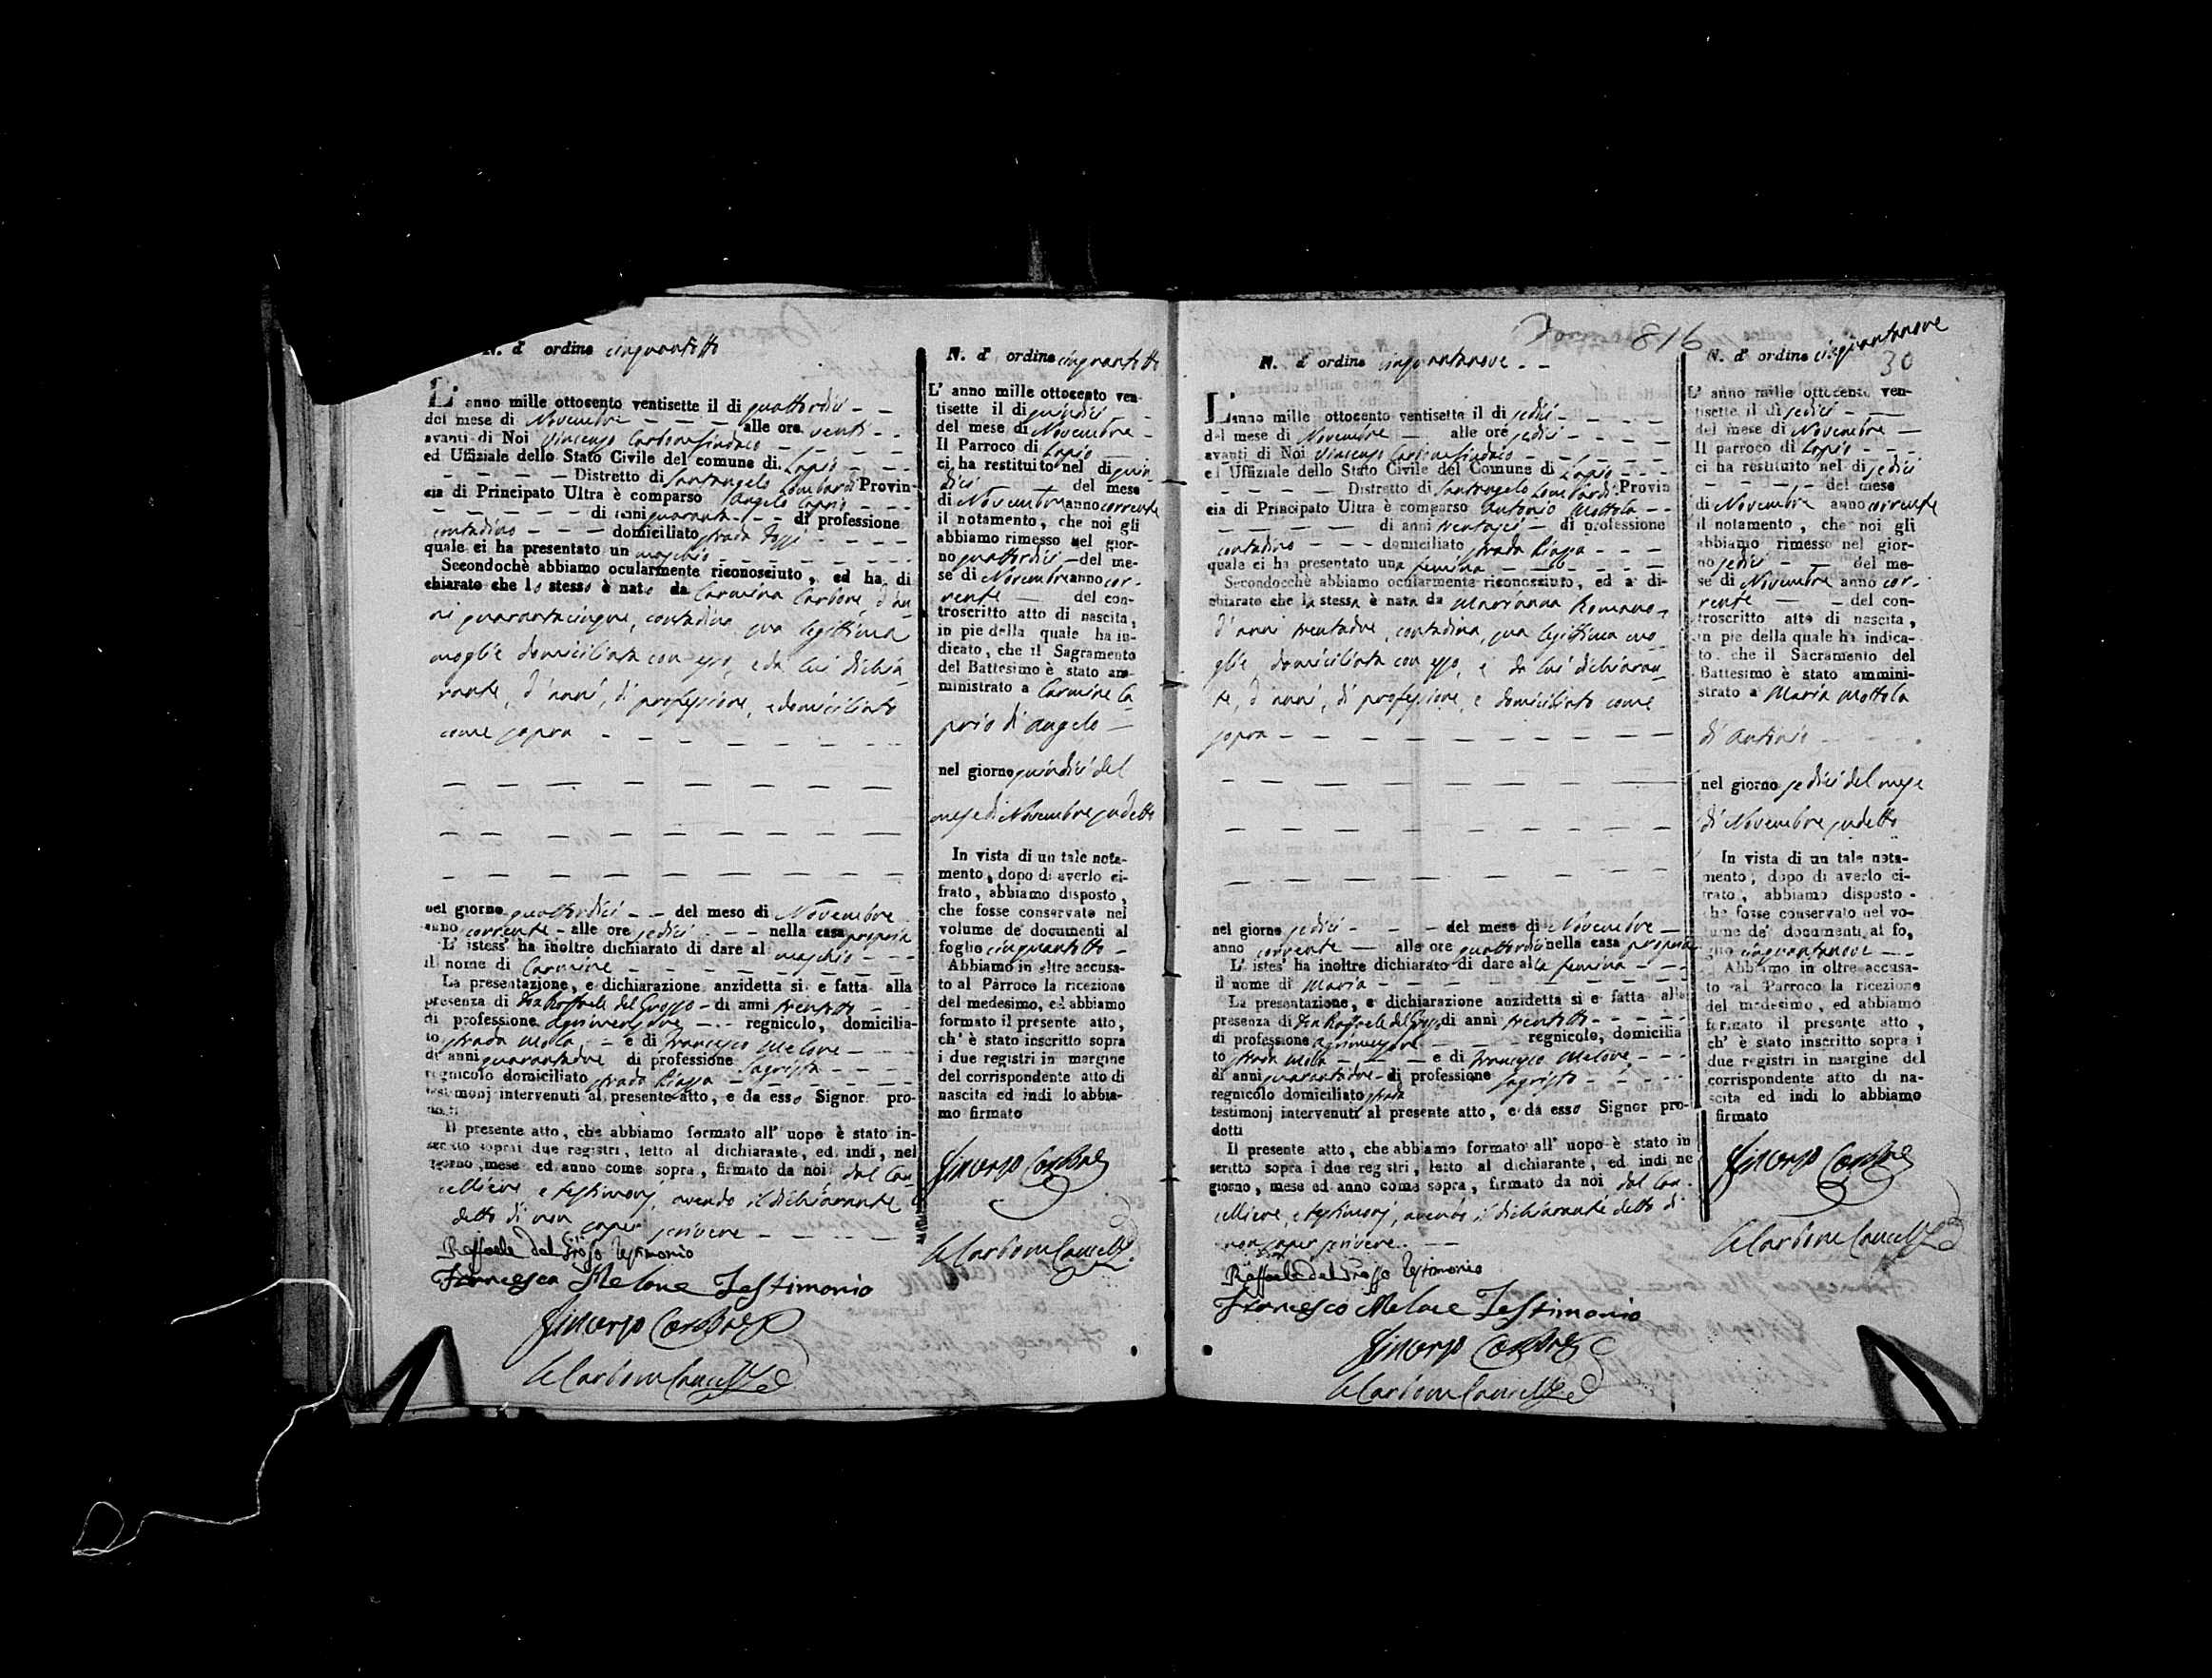 N. d' ordine cinquantotto
L' anno mille ottocento ventisette il di quattordici
del mese di Novembre alle ore venti
avanti di Noi Vincenzo Carbone Sindaco
ed Uffiziale dello Stato Civile del comune di Lapio
Distretto di Santangelo Lombardi Provin-
cia di Principato Ultra è comparso Angelo Caprio
di anni quaranta di professione
contadino domiciliato strada
quale ci ha presentato un maschio
Secondochè abbiamo ocularmente riconosciuto, ed ha di
chiarato che lo stesso è nato da Carmina Carbone, d'an
ni quarantacinque, contadina sua legittima
moglie domiciliata con esso, e da lui dichia-
rante, d'anni, di professione, e domiciliato
come sopra
nel giorno quattordici del mese di Novembre
anno corrente alle ore sedici nella casa propria
L' istess' ha inoltre dichiarato di dare al maschio
il nome di Carmine
La presentazione, e dichiarazione anzidetta si è fatta alla
presenza di Don Raffaele del Grosso di anni trentotto
di professione agrimensore regnicolo, domicilia-
to strada Mola e di Francesco Melone
di anni quarantadue di professione Sagrista
regnicolo domiciliato strada Piazza
testimonj intervenuti al presente atto, e da esso Signor pro-
dotti
Il presente atto, che abbiamo formato all' uopo è stato in-
scritto sopra i due registri, letto al dichiarante, ed indi, nel
giorno, mese ed anno come sopra, firmato da noi dal Can-
celliere, e testimonj, avendo il dichiarante
detto di non saper scrivere
Raffaele del Grosso Testimonio
Francesco Melone Testimonio
Vincenzo Carbone
Carbone Cancelliere
N. d' ordine cinquantotto
L' anno mille ottocento ven-
tisette il di quindici
del mese di Novembre
Il Parroco di Lapio
ci ha restituito nel di quin
dici del mese
di Novembre anno corrente
il notamento, che noi gli
abbiamo rimesso nel gior-
no quattordici del me-
se di Novembre anno cor-
rente del con-
troscritto atto di nascita,
in pie della quale ha in-
dicato, che il Sagramento
del Battesimo è stato am-
ministrato a Carmine Ca
prio di Angelo
nel giorno quindici del
mese di Novembre sudetto
In vista di un tale nota-
mento, dopo di averlo ci-
frato, abbiamo disposto,
che fosse conservato nel
volume de' documenti al
foglio cinquantotto
Abbiamo in oltre accusa-
to al Parroco la ricezione
del medesimo, ed abbiamo
formato il presente atto,
ch' è stato inscritto sopra
i due registri in margine
del corrispondente atto di
nascita ed indi lo abbia-
mo firmato
Vincenzo Carbone
Carbone Cancelliere
816
N. d' ordine cinquantanove
L' anno mille ottocento ventisette il di sedici
del mese di Novembre alle ore sedici
avanti di Noi Vincenzo Carbone Sindaco
ed Uffiziale dello Stato Civile del Comune di Lapio
Distretto di Santangelo Lombardi Provin
cia di Principato Ultra è comparso Antonio Mottola
di anni trentasei di professione
contadino domiciliato strada Piazza
quale ci ha presentato una femina
Secondocchè abbiamo ocularmente riconosciuto, ed a di-
chiarato che la stessa è nata da Marianna Romano,
d'anni trentadue, contadina, sua legittima mo
glie domiciliata con esso, e da lui dichiaran-
te, d'anni, di professione, e domiciliato come
sopra
nel giorno sedici del mese di Novembre
anno corrente alle ore quattordici nella casa propria
L' istes' ha inoltre dichiarato di dare alla femina
il nome di Maria
La presentazione, e dichiarazione anzidetta si e fatta alla
presenza di Don Raffaele del Grosso di anni trentotto
di professione agrimensore regnicolo, domicilia
to strada Mola e di Francesco Melone
di anni quarantadue di professione Sagrista
regnicolo domiciliato strada
testimonj intervenuti al presente atto, e da esso Signor pro-
dotti
Il presente atto, che abbiamo formato all' uopo è stato in
scritto sopra i due registri, letto al dichiarante, ed indi ne
giorno, mese ed anno come sopra, firmato da noi dal Can-
celliere, e testimonj, avendo il dichiarante detto di
non saper scrivere
Raffaele del Grosso Testimonio
Francesco Melone Testimonio
Vincenzo Carbone
Carbone Cancelliere
N. d' ordine cinquantanove
30
L' anno mille ottocento ven-
tisette il di sedici
del mese di Novembre
Il parroco di Lapio
ci ha restituito nel di sedici
del mese
di Novembre anno corrente
il notamento, che noi gli
abbiamo rimesso nel gior-
no sedici del me-
se di Novembre anno cor-
rente del con-
troscritto atto di nascita,
in pie della quale ha indica-
to, che il Sacramento del
Battesimo è stato ammini-
strato a Maria Mottola
di Antonio
nel giorno sedici del mese
di Novembre sudetto
In vista di un tale nota-
mento, dopo di averlo ci-
frato, abbiamo disposto
che fosse conservato nel vo-
lume de' documenti al fo-
glio cinquantanove
Abbiamo in oltre accusa-
to al Parroco la ricezione
del medesimo, ed abbiamo
formato il presente atto,
ch' è stato inscritto sopra i
due registri in margine del
corrispondente atto di na-
scita ed indi lo abbiamo
firmato
Vincenzo Carbone
Carbone Cancelliere